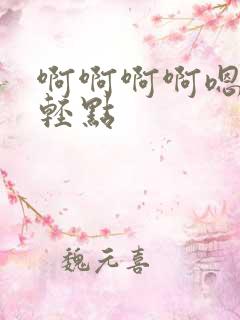 啊啊啊啊嗯
輕點
魏元喜